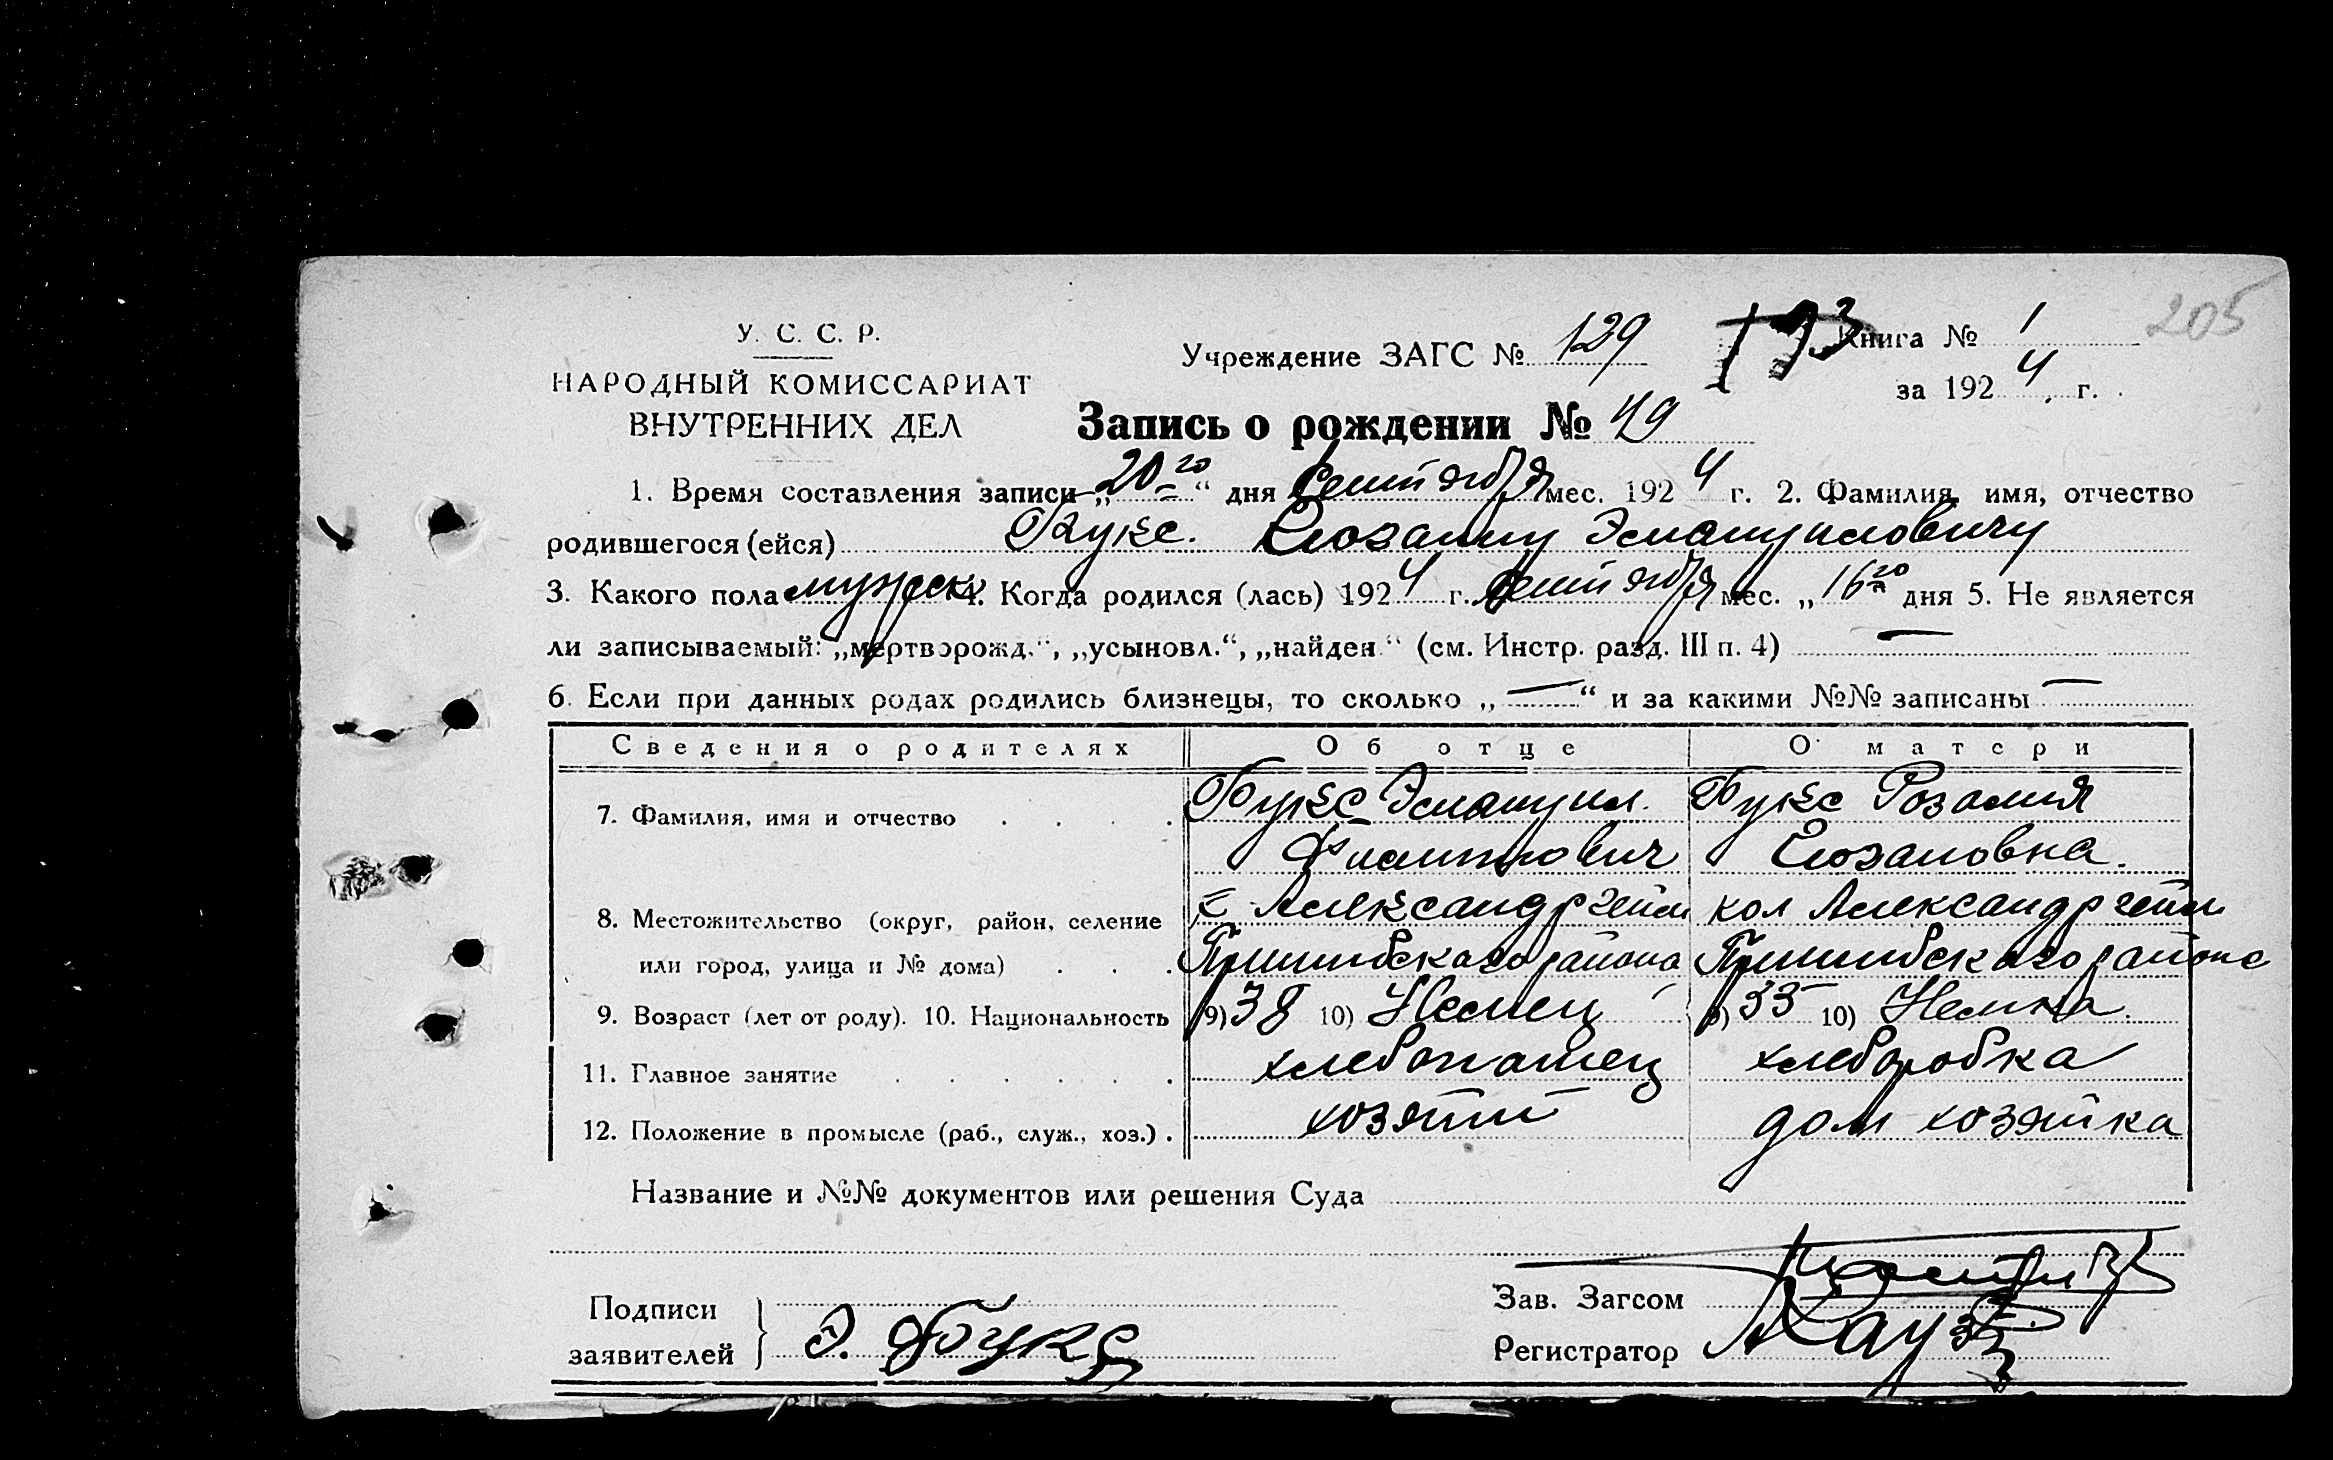 205
У. С. С. Р.
НАРОДНЫЙ КОМИССАРИАТ
ВНУТРЕННИХ ДЕЛ
Учреждение ЗАГС № 129
193
Книга № 1
за 1924 г.
Запись о рождении № 49
1. Время составления записи „20 го“ дня Сентября мес. 1924 г. 2. Фамилия, имя, отчество
родившегося (ейся) Букс.
3. Какого пола мужск 4. Когда родился (лась) 1924 г. Сентября мес. „16 го дня 5. Не является
ли записываемый: „мертворожд.“, „усыновл.“, „найден“ (см. Инстр. разд. III п. 4) —
6. Если при данных родах родились близнецы, то сколько „—“ и за какими №№ записаны —
Сведения о родителях Об отце О матери
7. Фамилия, имя и отчество Букс Эмануил. Букс Розалия
8. Местожительство (округ, район, селение Александргейм кол Александргейм
или город, улица и № дома) Пришибского района Пришибского района
9. Возраст (лет от роду). 10. Национальность 9) 38 10) Немец 9) 35 10) Немка
11. Главное занятие хлебопашец хлеборобка
12. Положение в промысле (раб., служ., хоз.) хозяин дом хозяйка
Название и №№ документов или решения Суда
Подписи
заявителей Э. Букс
Зав. Загсом
Регистратор